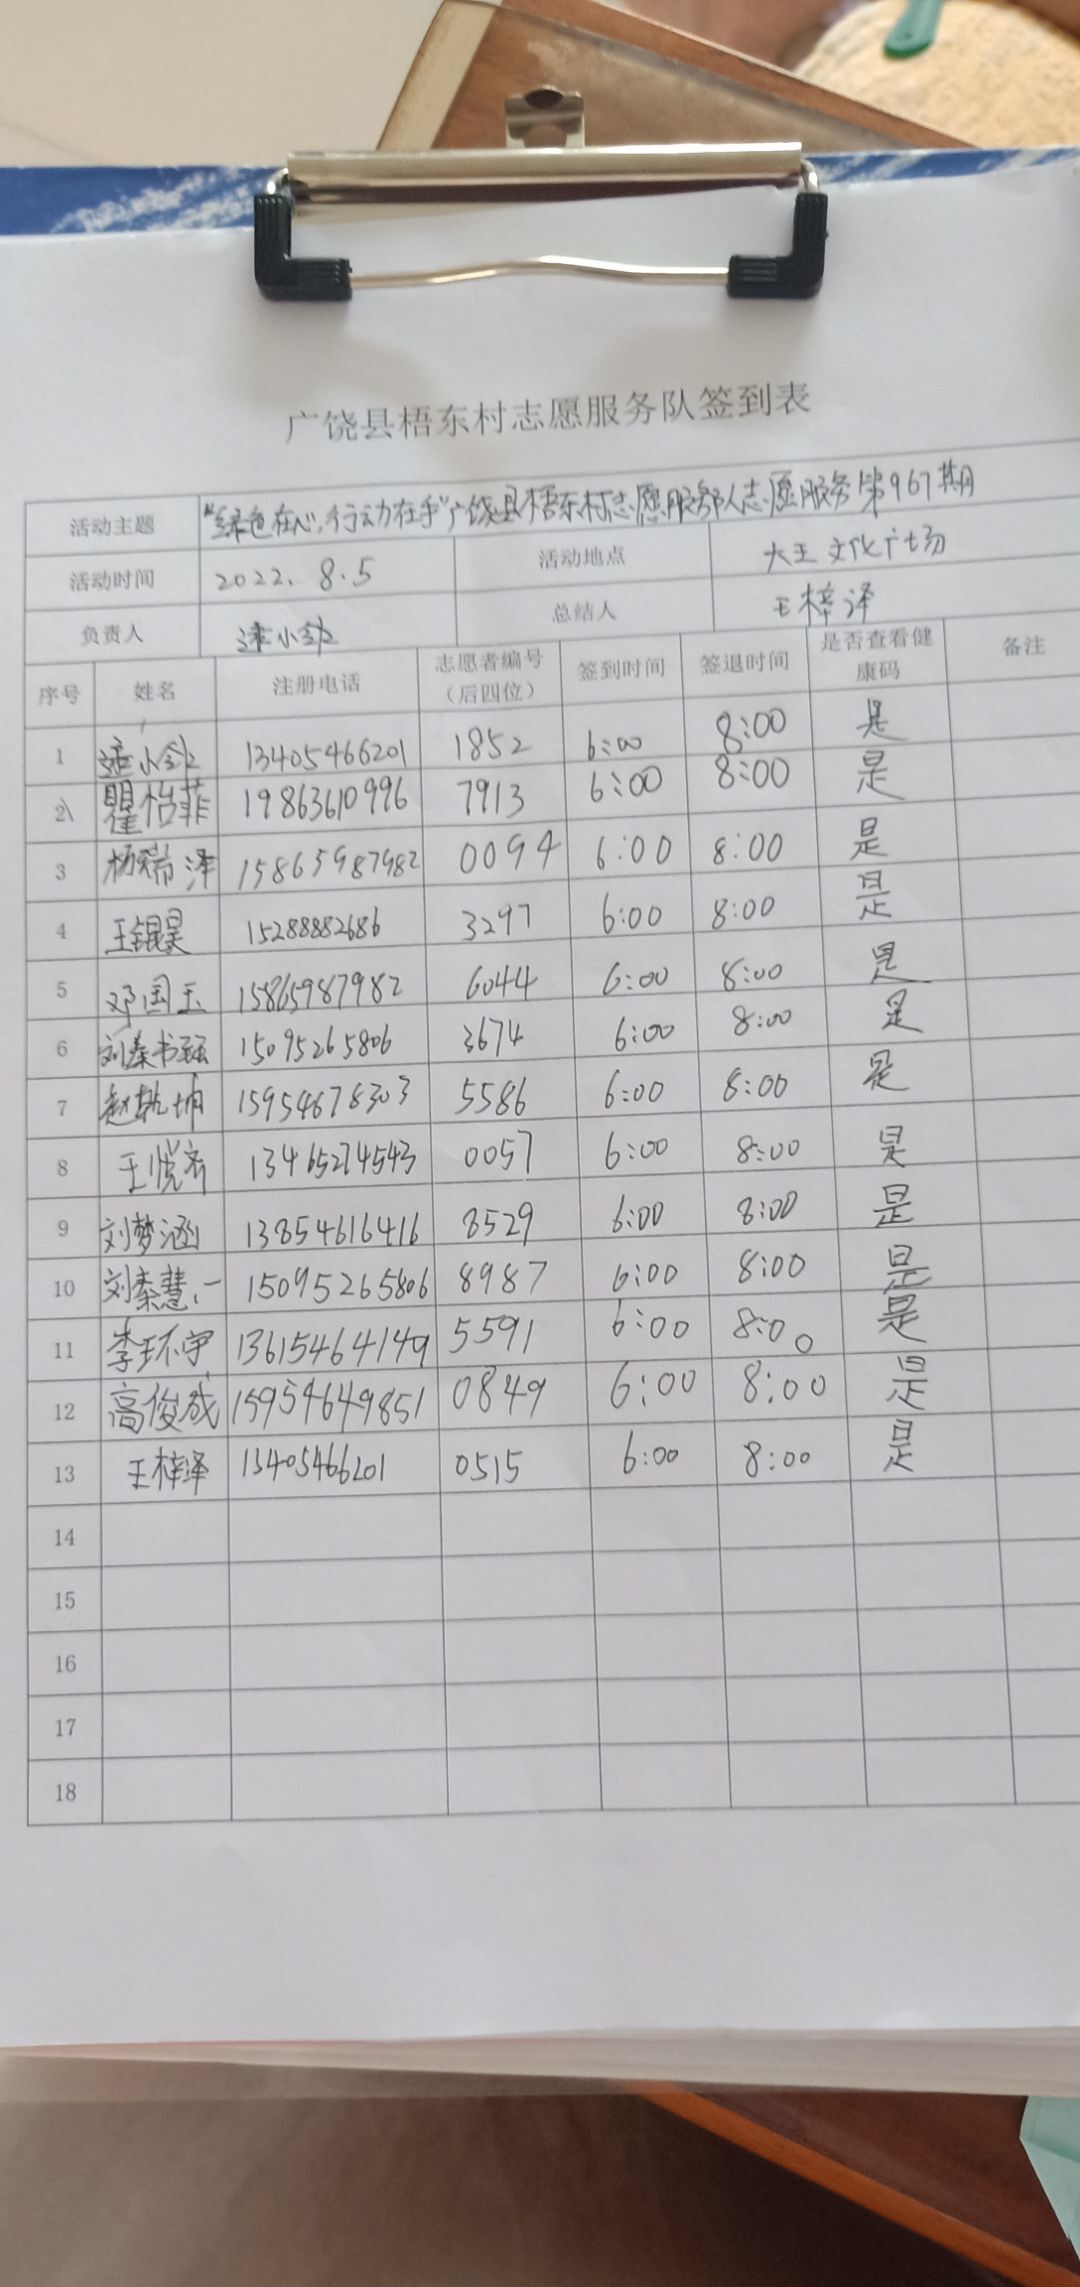 广饶县梧东村志愿服务队签到表
活动主题 “绿色在心,行动在手”广饶县梧东村志愿服务队志愿服务第967期
活动时间 2022.8.5 活动地点 大王文化广场
负责人 小 总结人 王梓泽
序号 姓名 注册电话 志愿者编号(后四位) 签到时间 签退时间 是否查看健康码 备注
1 小 13405466201 1852 6:00 8:00 是
2 瞿怡菲 19863610996 7913 6:00 8:00 是
3 杨瑞泽 15865987982 0094 6:00 8:00 是
4 王锟昊 15288882686 3297 6:00 8:00 是
5 邓国玉 15865987982 6044 6:00 8:00 是
6 刘秦书 15095265806 3674 6:00 8:00 是
7 赵乾坤 15954678303 5586 6:00 8:00 是
8 王悦齐 13465274543 0057 6:00 8:00 是
9 刘梦涵 13854616416 8529 6:00 8:00 是
10 刘秦慧一 15095265806 8987 6:00 8:00 是
11 李环宇 13615464149 5591 6:00 8:00 是
12 高俊成 15954649851 0849 6:00 8:00 是
13 王梓泽 13405466201 0515 6:00 8:00 是
14
15
16
17
18